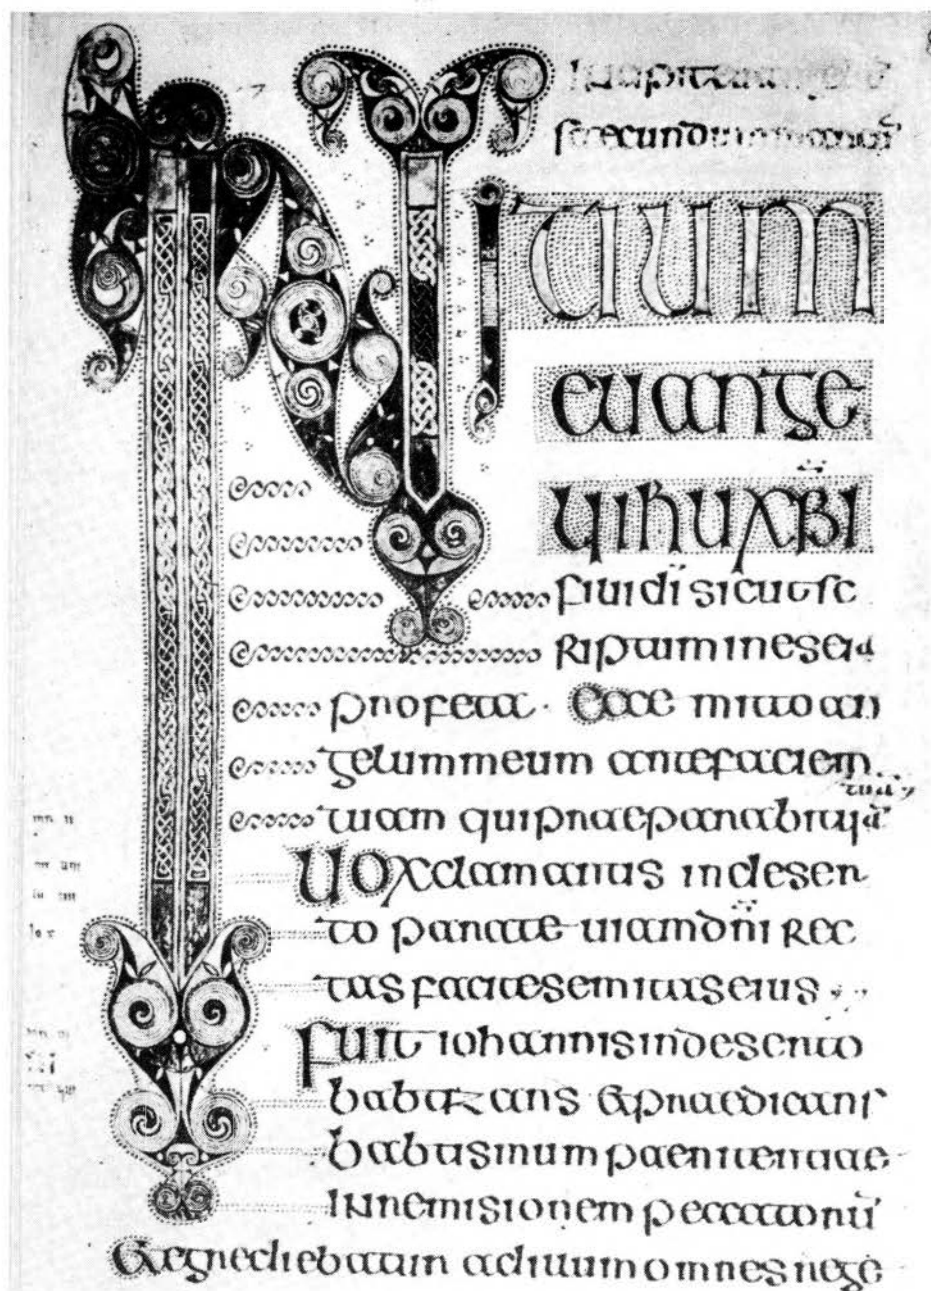 Incipit euangeliū
secundum marcū
INITIUM
euange
lii ihu xpi
filii dī sicut sc
riptum in eseia
profeta · Ecce mitto an
gelum meum ante faciem
tuam qui praeparabit uiā
tuā
Uox clamantis in deser
to parate uiam dn̄i rec
tas facite semitas eius
Fuit iohannis in deserto
babtizans & praedicans
babtismum paenitentiae
in remisionem peccatorū
& egrediebatur ad illum omnes rege